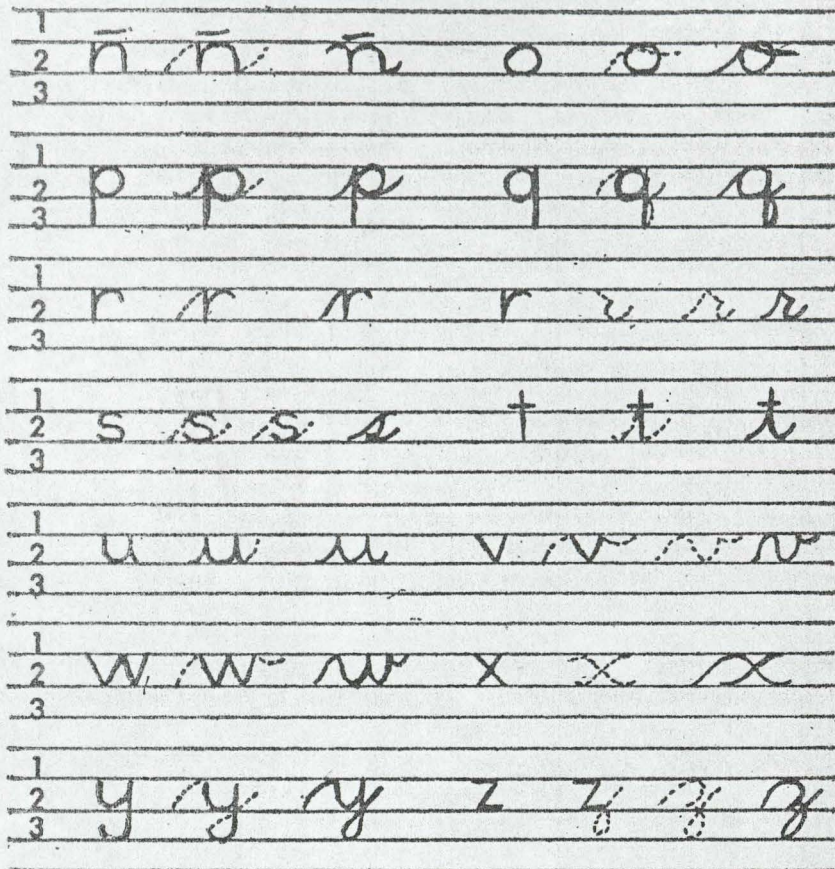 1
2 ñ ñ ñ o o o
3
1
2 p p p q q q
3
1
2 r r r r r r r
3
1
2 s s s s t t t
3
1
2 u u u v v v v
3
1
2 w w w x x x
3
1
2 y y y z z z z
3